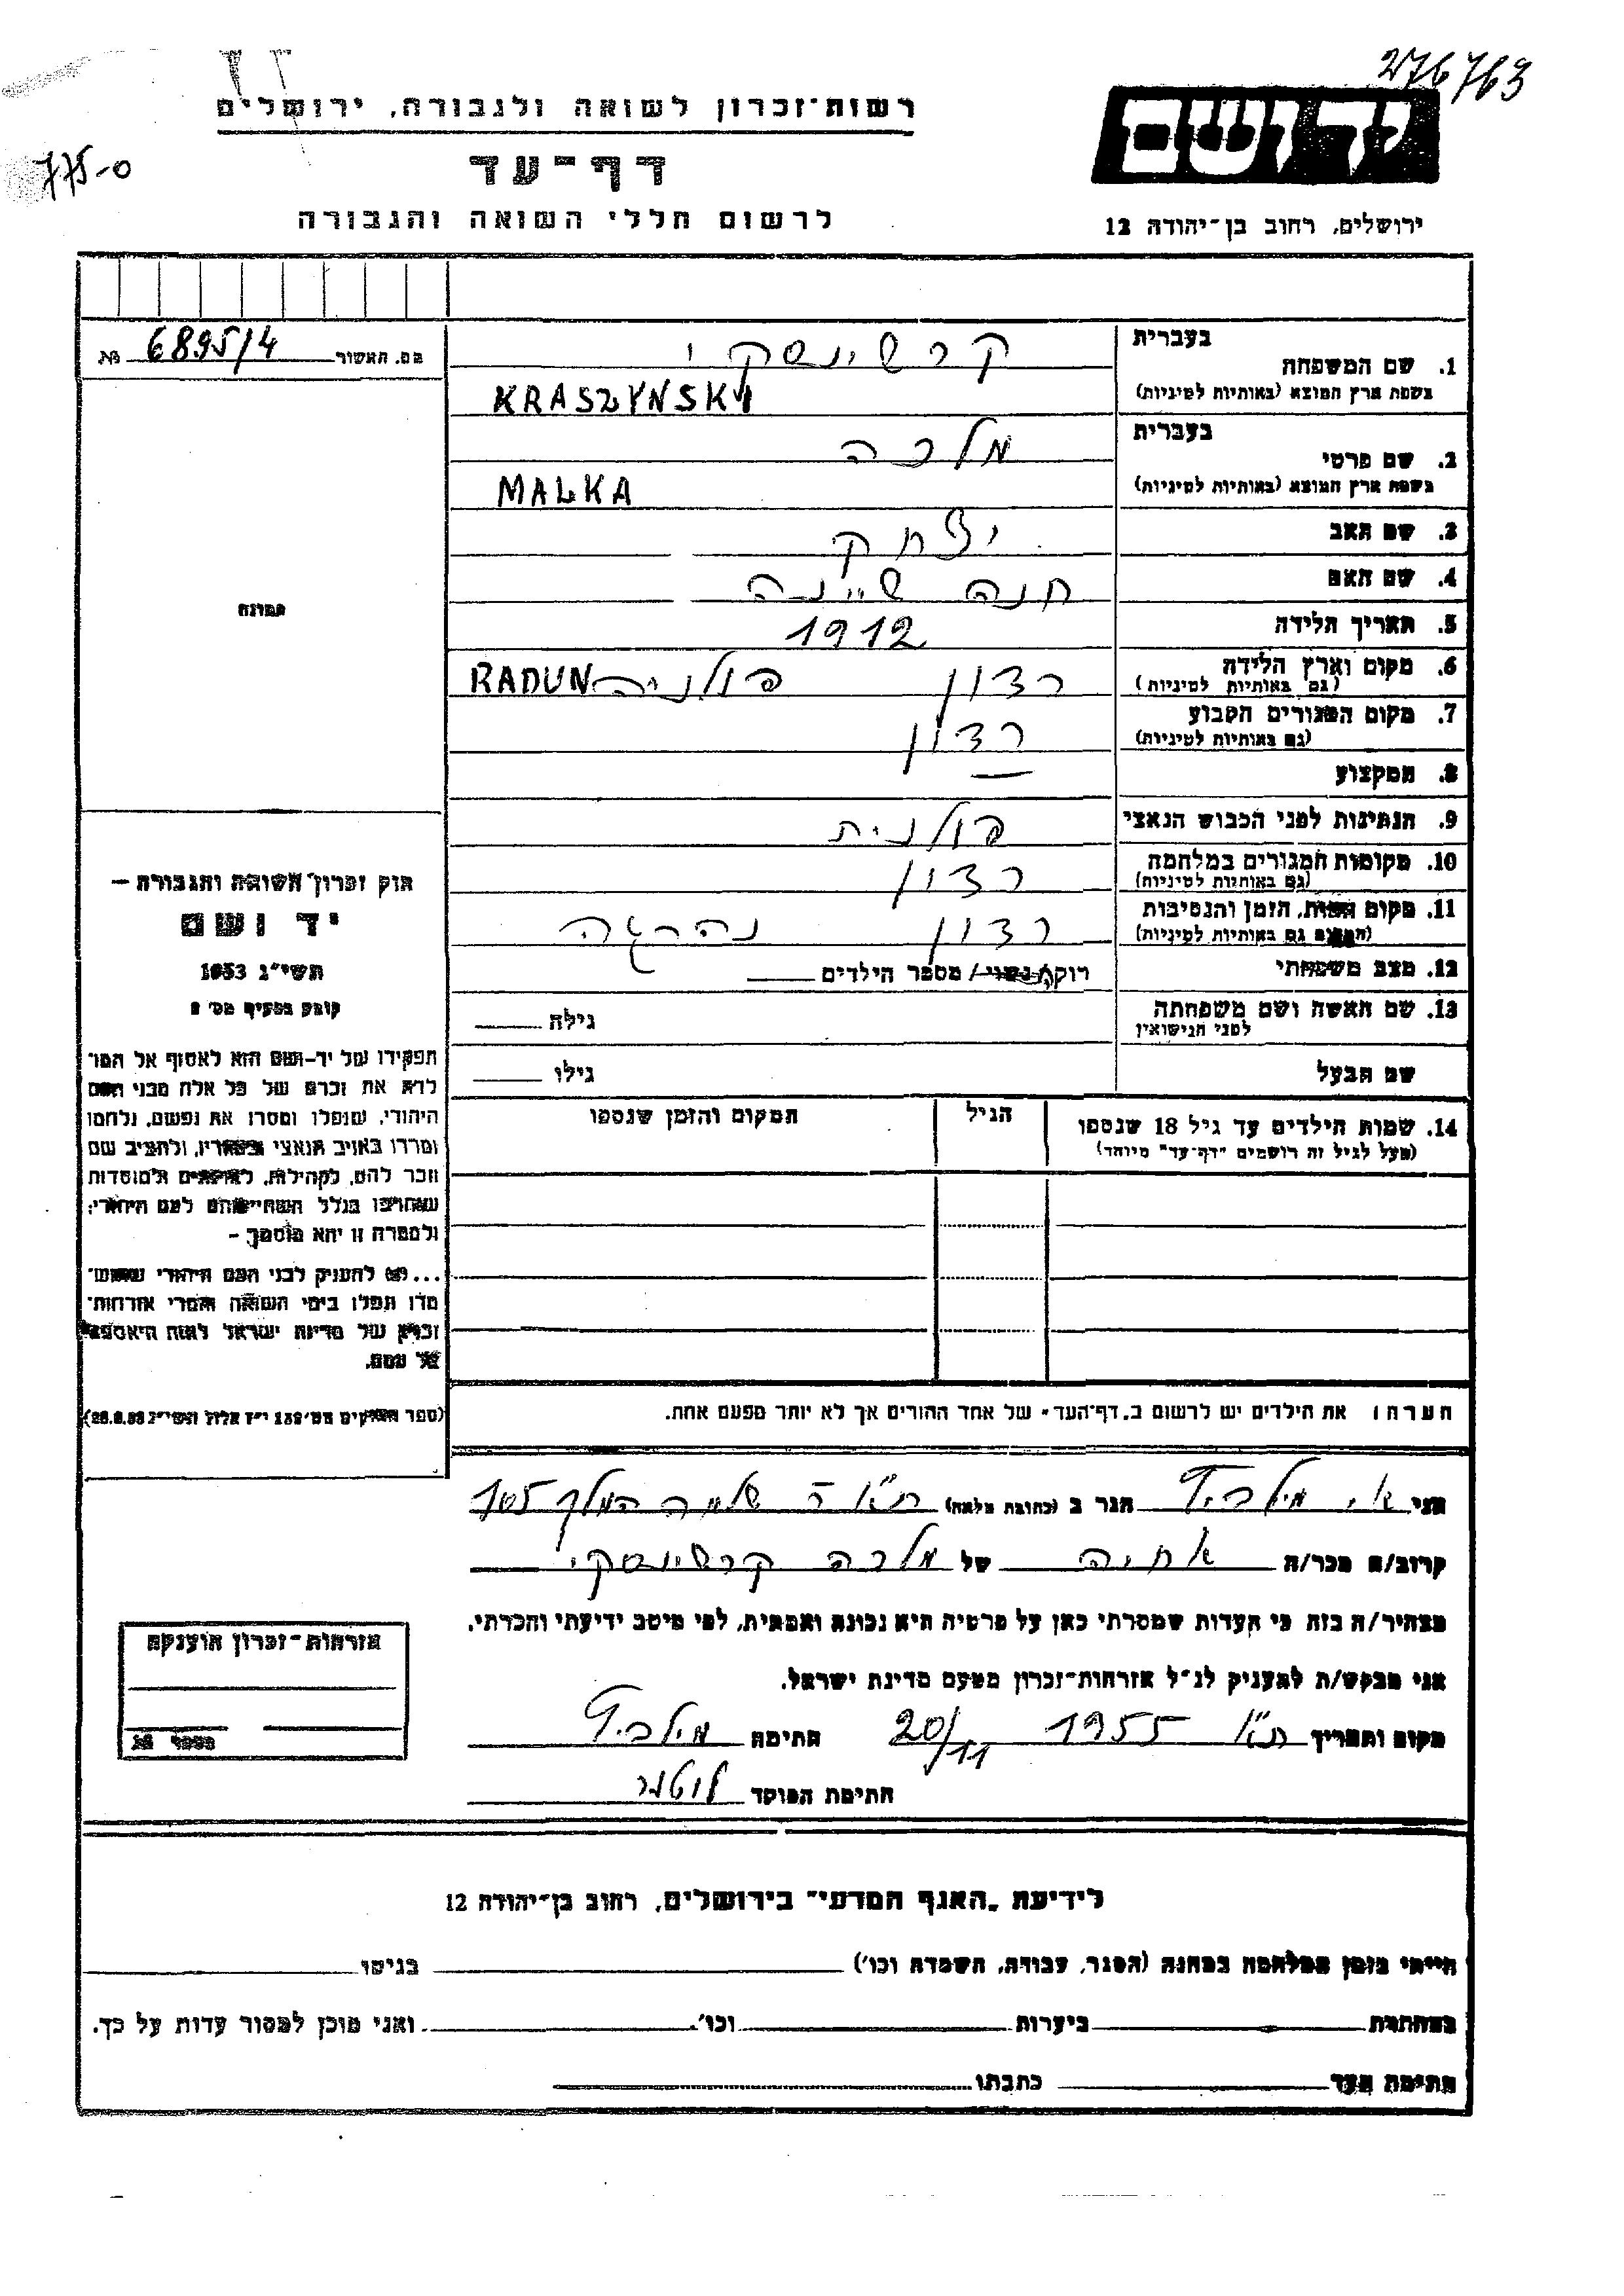 276763
רשות־זכרון לשואה ולגבורה, ירושלים
יד ושם
775-0
דף־עד
לרשום חללי השואה והגבורה
ירושלים, רחוב בן־יהודה 12
מס. האשור 6895/4 №
בעברית
1. שם המשפחה קרשינסקי
בשפת ארץ המוצא (באותיות לטיניות) KRASZYNSKI
בעברית
2. שם פרטי מלכה
בשפת ארץ המוצא (באותיות לטיניות) MALKA
3. שם האב יצחק
4. שם האם חנה שיינה
תמונה
5. תאריך הלידה 1912
6. מקום וארץ הלידה רדון פולניה RADUN
(גם באותיות לטיניות)
7. מקום המגורים הקבוע רדון
(גם באותיות לטיניות)
8. המקצוע —
9. הנתינות לפני הכבוש הנאצי פולנית
10. מקומות המגורים במלחמה רדון
(גם באותיות לטיניות)
11. מקום המות, הזמן והנסיבות רדון נהרגה
(המקום גם באותיות לטיניות)
12. מצב משפחתי רוקה/נשוי/ מספר הילדים
13. שם האשה ושם משפחתה גילה
לפני הנישואין
שם הבעל גילו
14. שמות הילדים עד גיל 18 שנספו הגיל המקום והזמן שנספו
(מעל לגיל זה רושמים "דף־עד" מיוחד)
חוק זכרון השואה והגבורה —
יד ושם
תשי"ג 1953
קובע בסעיף מס' 2
תפקידו של יד-ושם הוא לאסוף אל המו־
לדת את זכרם של כל אלה מבני העם
היהודי, שנפלו ומסרו את נפשם, נלחמו
ומרדו באויב הנאצי ובעוזריו, ולהציב שם
וזכר להם, לקהילות, לארגונים ולמוסדות
שנחרבו בגלל השתייכותם לעם היהודי;
ולמטרה זו יהא מוסמך —
...(ו) להעניק לבני העם היהודי שהוש־
מדו ונפלו בימי השואה והמרי אזרחות־
זכרון של מדינת ישראל לאות היאספם
אל עמם.
(ספר החוקים מס' 132 י"ז אלול תשי"ג 28.8.53)
הערה: את הילדים יש לרשום ב„דף־העד" של אחד ההורים אך לא יותר מפעם אחת.
אני הגר ב (כתובת מלאה) ת"א ר' שלמה המלך 105
קרוב/ה מכר/ה אחיה של מלכה קרשינסקי
מצהיר/ה בזה כי העדות שמסרתי כאן על פרטיה היא נכונה ואמתית, לפי מיטב ידיעתי והכרתי.
אני מבקש/ת להעניק לנ"ל אזרחות־זכרון מטעם מדינת ישראל.
מקום ותאריך ת"א 1955 20/11 חתימה
חתימת הפוקד
אזרחות־זכרון הוענקה
מספר
לידיעת „האגף המדעי" בירושלים, רחוב בן־יהודה 12
הייתי בזמן המלחמה במחנה (הסגר, עבודה, השמדה וכו') בגיטו
במחתרת ביערות וכו'. ואני מוכן למסור עדות על כך.
חתימת העד כתבתו